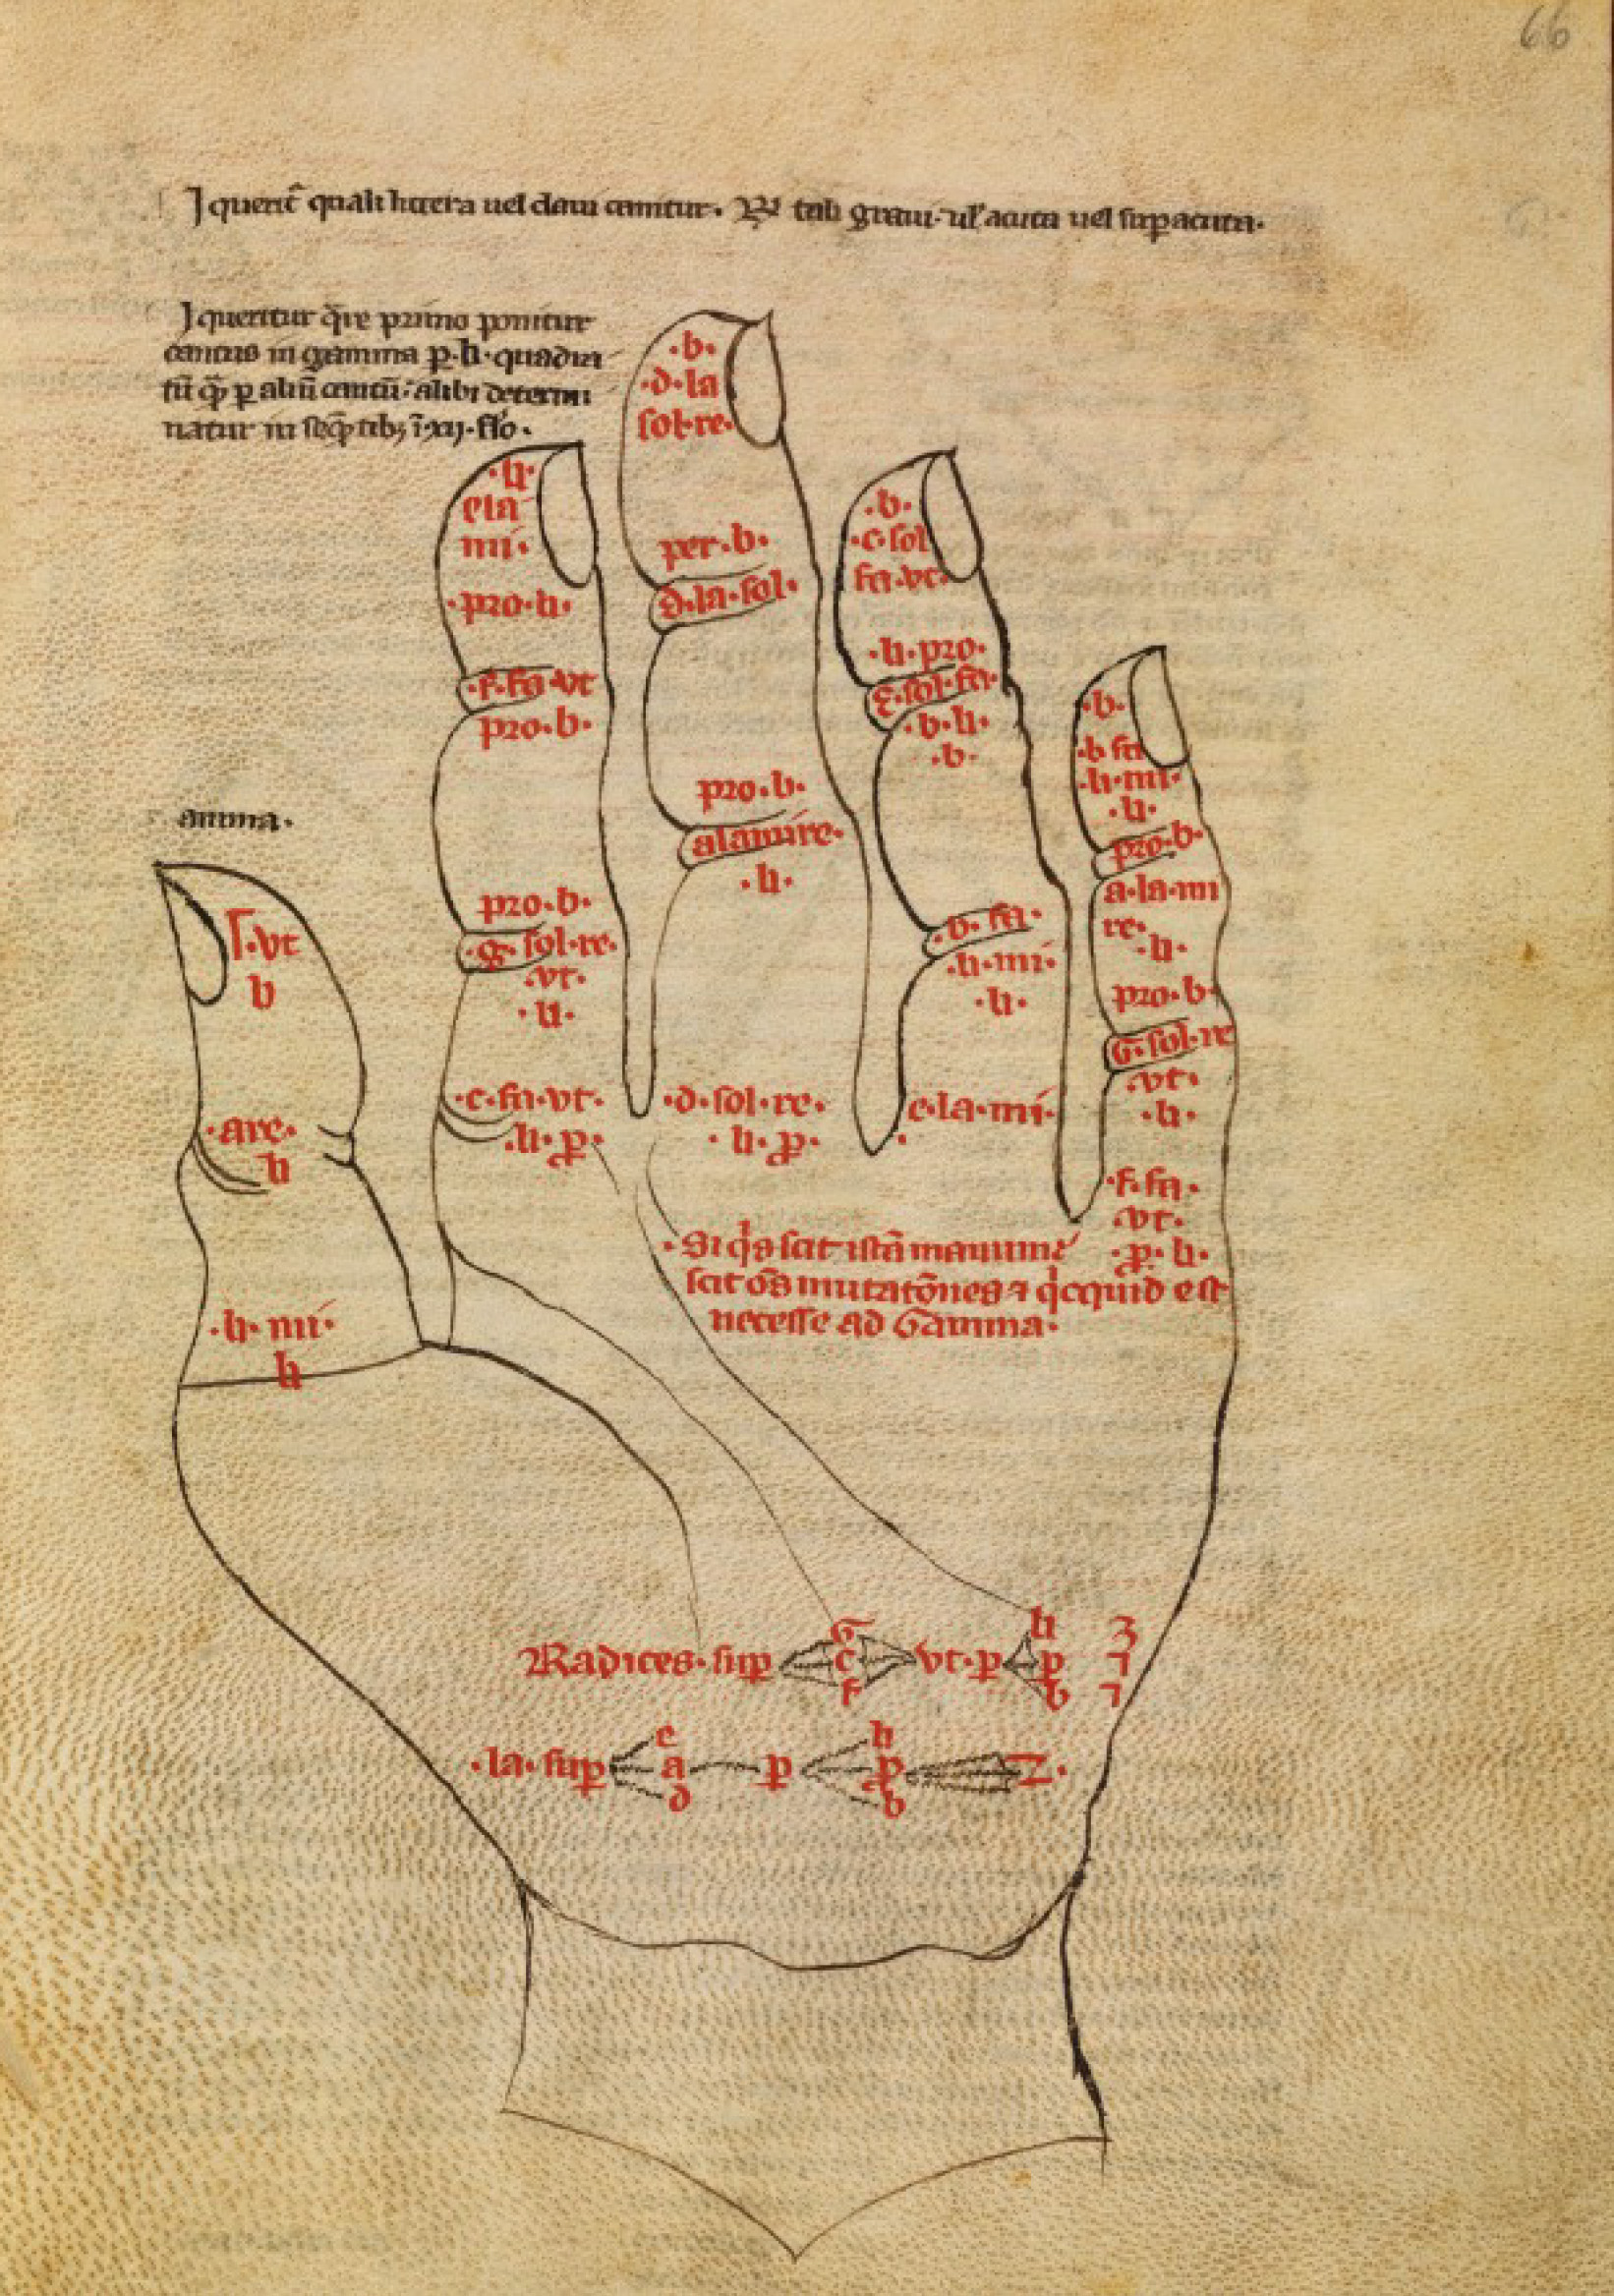 66
I querit̃ quali littera uel claui cantitur. R tali graui. ul' acuta uel sup acuta.
I queritur q̃re primo ponitur
cantus in gamma p. h. quadra
tũ q̃ p aliũ cantũ. alibi determi
natur in seq̃ tib; ĩ xij. fło.
.b.
.d.la
sol.re.
per.b.
d.la.sol.
pro.b.
alamire.
.h.
.h.
ela
mi.
.pro.h.
.f.fa.vt
pro.b.
pro.b.
.g.sol.re.
.vt.
.h.
.c.fa.vt.
.h.p.
.b.
.c.sol
fa.vt.
.h.pro.
c.sol.fa.
.b.h.
.b.
.b.fa.
.h.mi.
.h.
e.la.mi.
.b.
.b fa
.h.mi.
.h.
pro.b.
a.la.mi
re.
.h.
pro.b.
G.sol.re
.vt.
.h.
.f.fa.
.vt.
.p.h.
amma.
Γ.vt
b
.are.
h
.h.mi.
h
.d.sol.re.
.h.p.
.Si q's scit istã manum
scit oẽs mutatõnes ⁊ q'cquid est
necesse ad Gamma.
Radices.sup G c f vt.p h p b 3 7 7
.la.sup e a d p h p b Z.